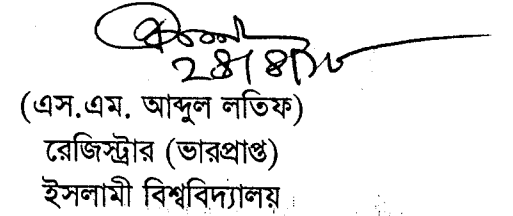 (এস.এম. আব্দুল লতিফ)
রেজিস্ট্রার (ভারপ্রাপ্ত)
ইসলামী বিশ্ববিদ্যালয়